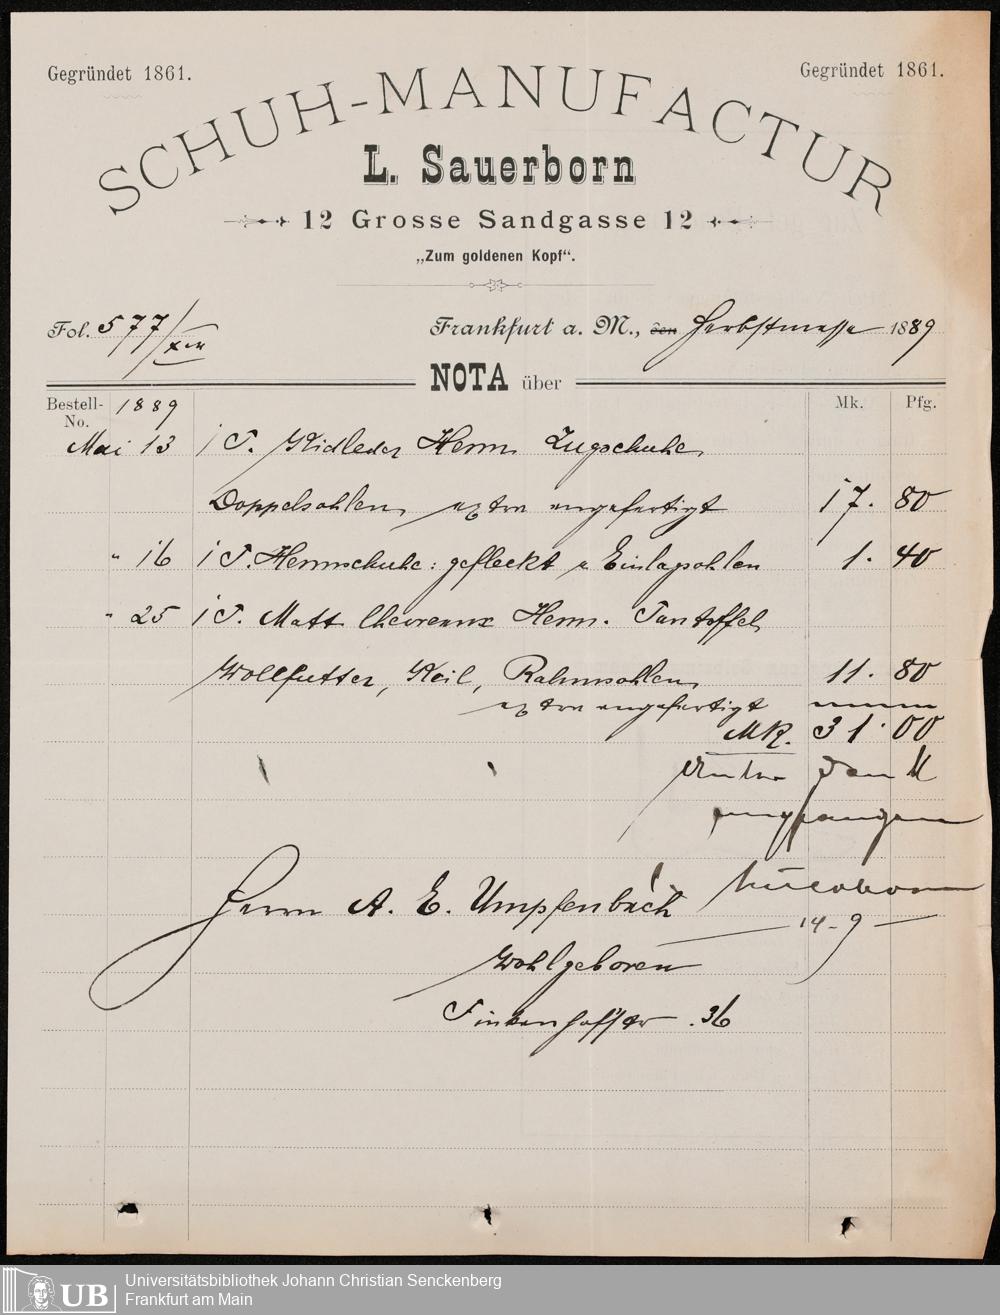 Gegründet 1861.
Gegründet 1861.
SCHUH-MANUFACTUR
L. Sauerborn
12 Grosse Sandgasse 12
„Zum goldenen Kopf“.
Fol. 577/
Frankfurt a. M., den Herbstmesse 1889
NOTA über
Bestell-No. 1889 Mk. Pfg.
Mai 13 1 P. Kidleder Herrn Zugschuhe
Doppelsohlen extra angefertigt 17. 80
" 16 1 P. Herrnschuhe: gefleckt u Einlagsohlen 1. 40
" 25 1 P. Matt Chevreaux Herrn. Pantoffel
Wollfutter, Keil, Rahmsohlen 11. 80
extra angefertigt
MK. 31. 00
empfangen
Sauerborn
14-9
Herrn A. E. Umpfenbach
Wohlgeboren
Finkenhofstr. 36
Universitätsbibliothek Johann Christian Senckenberg
Frankfurt am Main
UB